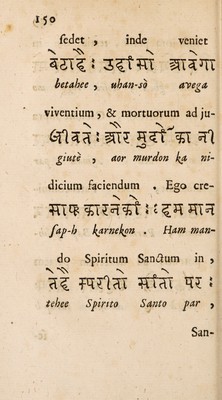 150
sedet , inde veniet
बेठाहैः उहाँसो आवेगा
betahee , uhan-sò avega
viventium, & mortuorum ad ju-
जीवतेः और मुर्दों का नी
giutè , aor murdon ka ni-
dicium faciendum . Ego cre-
साफ कारनेकोंः हम मान
sap-h karnekon . Ham man-
do Spiritum Sanctum in ,
तेहै स्परीतो सांतो परः
tehee Spirito Santo par ,
San-